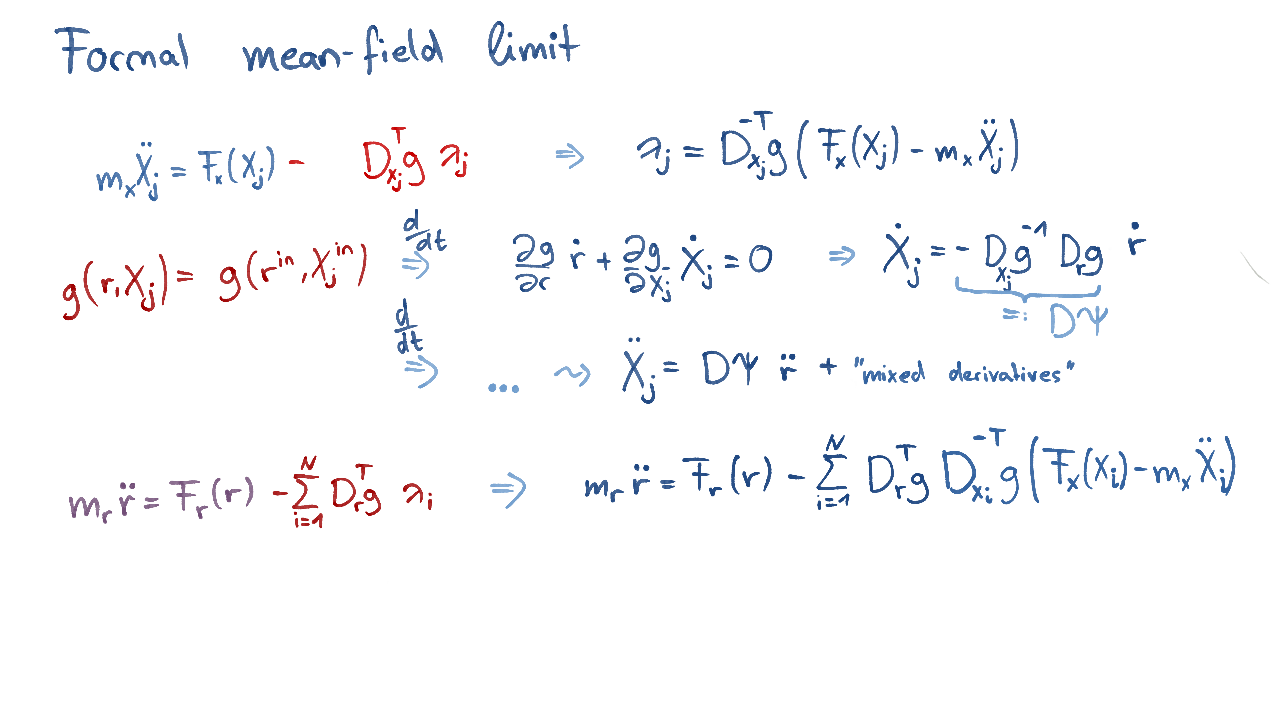 Formal mean-field limit
m_x Ẍ_j = F_x(X_j) - D_{x_j}^T g λ_j ⇒ λ_j = D_{x_j}^{-T} g (F_x(X_j) - m_x Ẍ_j)
g(r, X_j) = g(r^{in}, X_j^{in}) d/dt ⇒ ∂g/∂r ṙ + ∂g/∂X_j Ẋ_j = 0 ⇒ Ẋ_j = - D_{x_j} g^{-1} D_r g ṙ
=: DΨ
d/dt ⇒ ... ⇝ Ẍ_j = DΨ r̈ + "mixed derivatives"
m_r r̈ = F_r(r) - ∑_{i=1}^N D_r^T g λ_i ⇒ m_r r̈ = F_r(r) - ∑_{i=1}^N D_r^T g D_{x_i}^{-T} g (F_x(X_i) - m_x Ẍ_i)